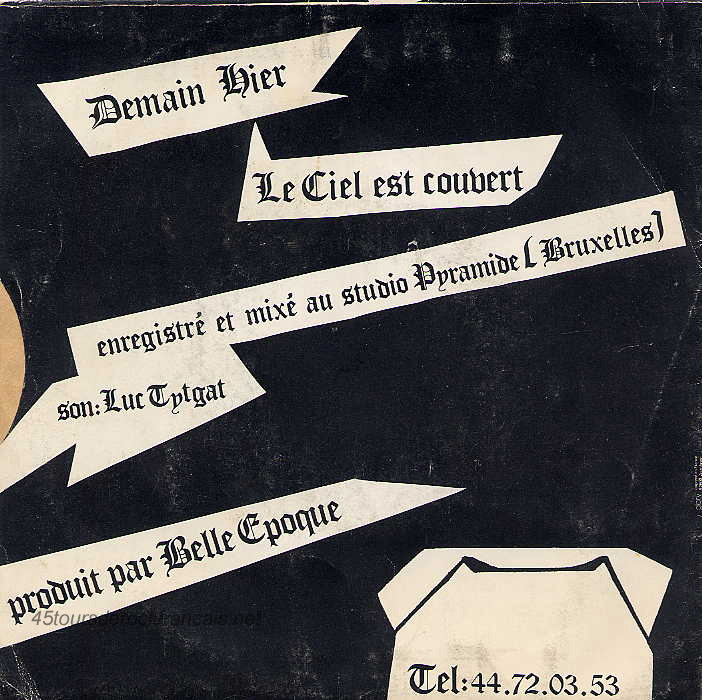 Demain Hier
Le Ciel est couvert
enregistré et mixé au studio Pyramide (Bruxelles)
son: Luc Tytgat
produit par Belle Epoque
45toursderockfrancais.net
Tel: 44.72.03.53